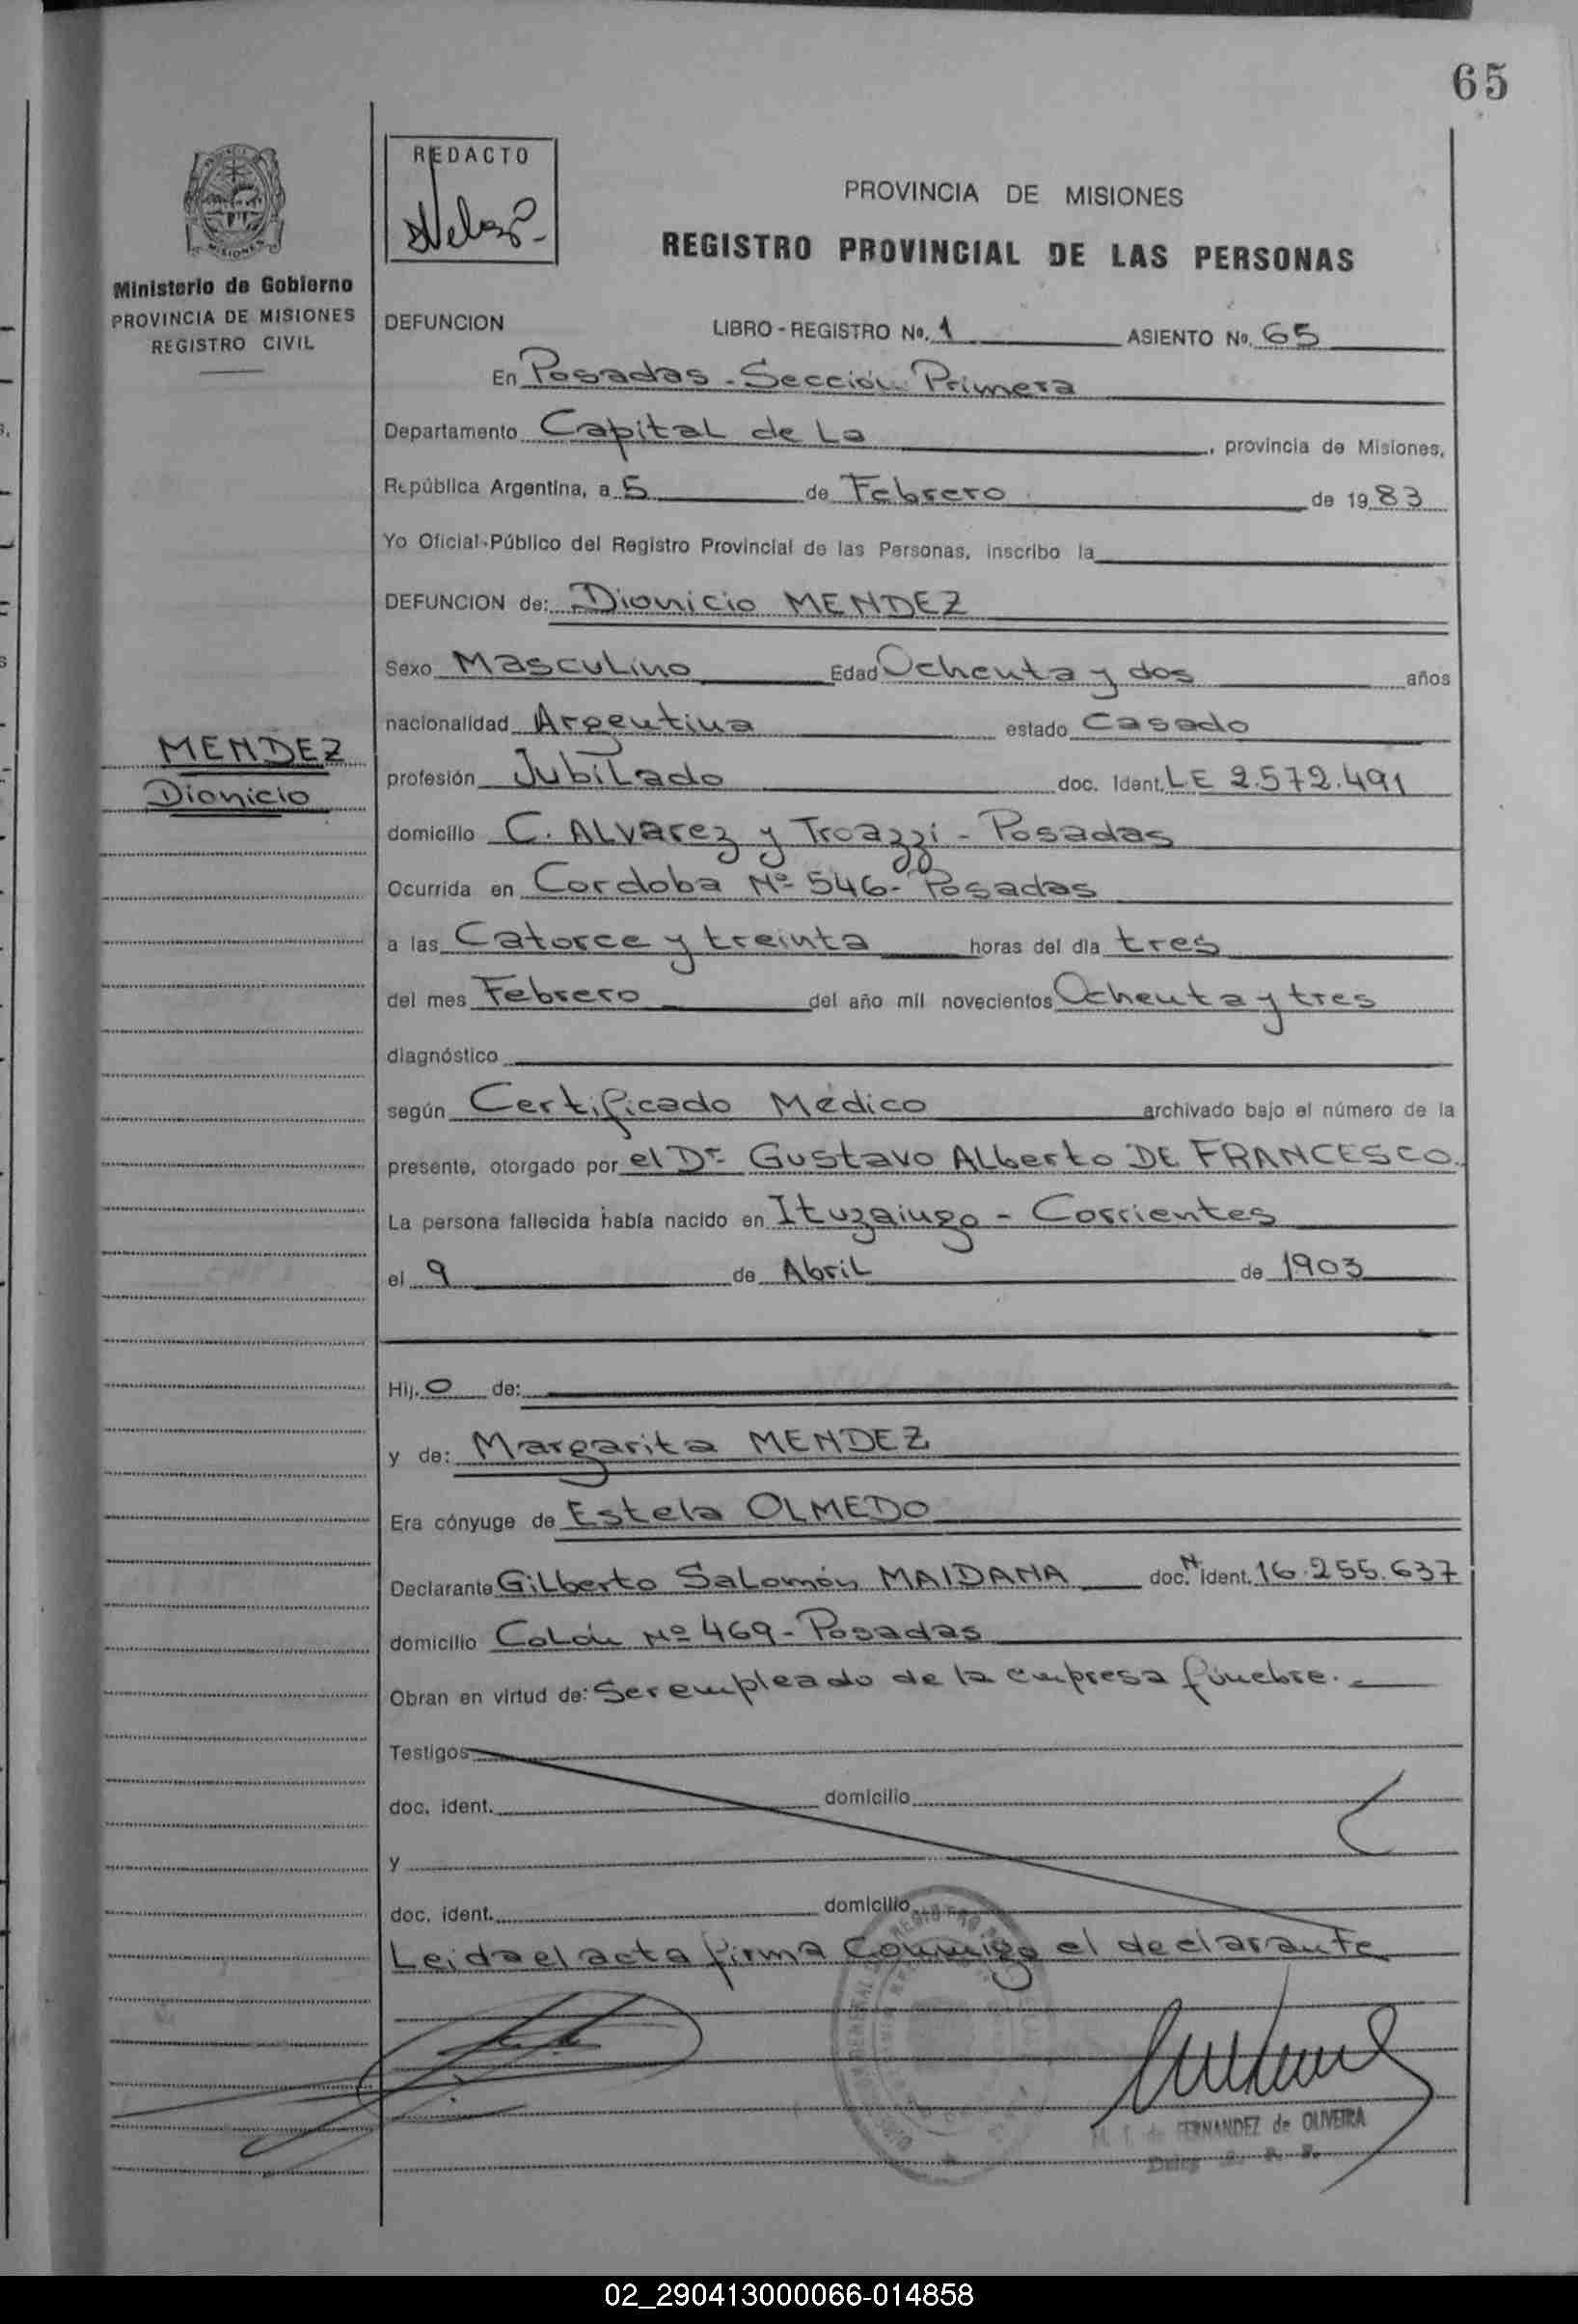 65
REDACTO
PROVINCIA DE MISIONES
REGISTRO PROVINCIAL DE LAS PERSONAS
MISIONES
Ministerio de Gobierno
PROVINCIA DE MISIONES
REGISTRO CIVIL
DEFUNCION LIBRO - REGISTRO No. 1 ASIENTO No. 65
En Posadas - Sección Primera
Departamento Capital de La , provincia de Misiones,
República Argentina, a 5 de Febrero de 1983
Yo Oficial Público del Registro Provincial de las Personas, inscribo la
DEFUNCION de: Dionicio MENDEZ
Sexo Masculino Edad Ochenta y dos años
nacionalidad Argentina estado Casado
MENDEZ
Dionicio
profesión Jubilado doc. Ident. LE 2.572.491
domicilio C. Alvarez y Troazzi - Posadas
Ocurrida en Cordoba Nº 546 - Posadas
a las Catorce y treinta horas del día tres
del mes Febrero del año mil novecientos Ochenta y tres
diagnóstico
según Certificado Médico archivado bajo el número de la
presente, otorgado por el Dr. Gustavo Alberto DE FRANCESCO.
La persona fallecida había nacido en Ituzaingo - Corrientes
el 9 de Abril de 1903
Hij. o de:
y de: Margarita MENDEZ
Era cónyuge de Estela OLMEDO
Declarante Gilberto Salomón MAIDANA doc. N. Ident. 16.255.637
domicilio Colón Nº 469 - Posadas
Obran en virtud de: Ser empleado de la empresa fúnebre.
Testigos
doc. ident. domicilio
y
doc. ident. domicilio
Leida el acta firma conmigo el declarante
FERNANDEZ de OLIVEIRA
02_290413000066-014858